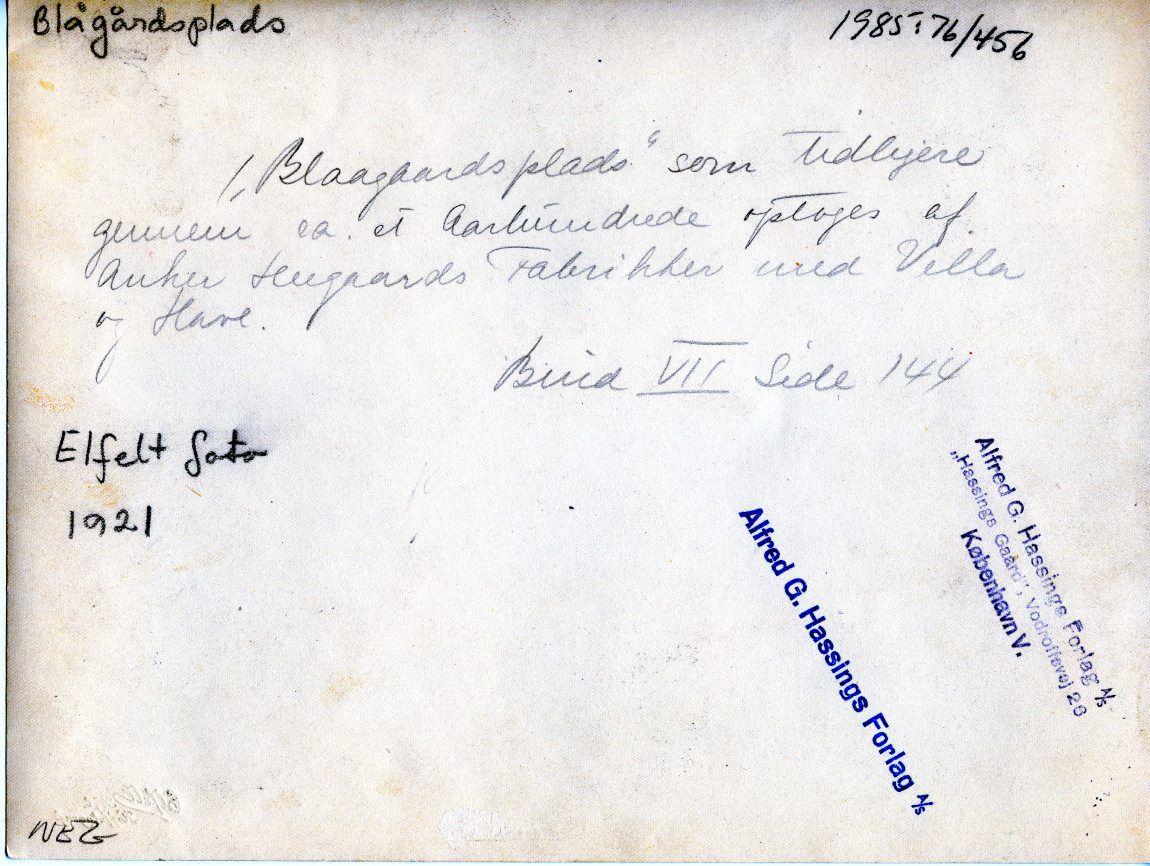 Blågårdsplads
1985:76/456
„Blaagaardsplads“ som tidligere
gennem ca. et Aarhundrede optoges af
Anker Heegaards Fabrikker med Villa
og Have.
Bind VII Side 144
Elfelt foto
1921
Alfred G. Hassings Forlag A/S
„Hassings Gaard“, Vodroffsvej 26
København V.
Alfred G. Hassings Forlag A/S
NEG